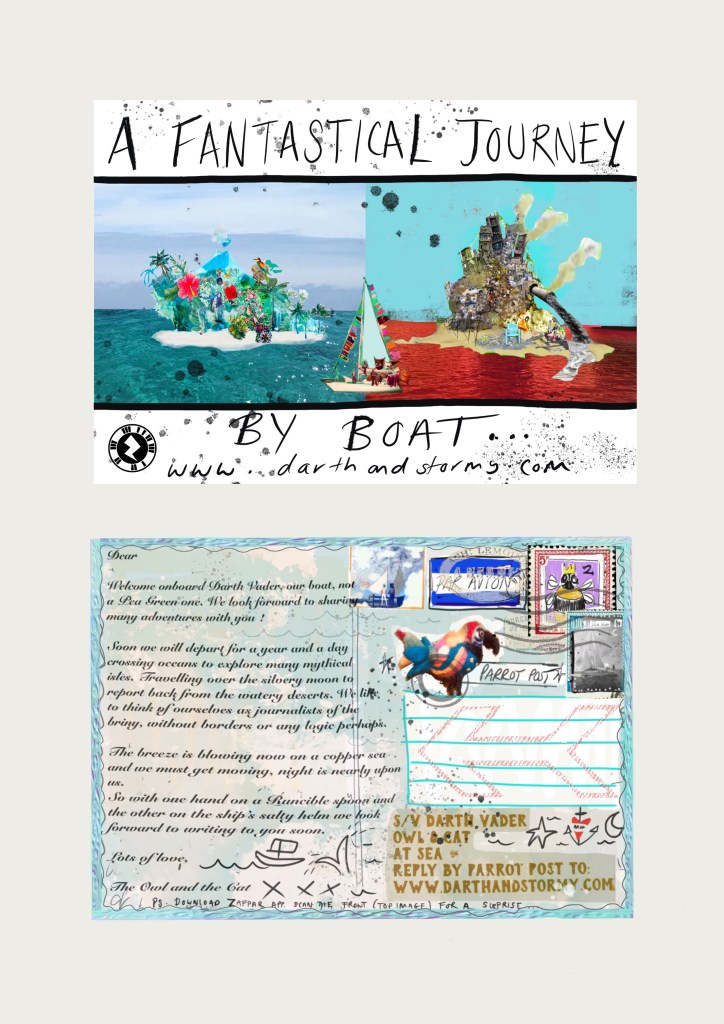 A FANTASTICAL JOURNEY
BY BOAT...
www..darthandstormy.com
Dear
Welcome onboard Darth Vader, our boat, not
a Pea Green one. We look forward to sharing
many adventures with you !
Soon we will depart for a year and a day
crossing oceans to explore many mythical
isles. Travelling over the silvery moon to
report back from the watery deserts. We like
to think of ourselves as journalists of the
briny, without borders or any logic perhaps.
The breeze is blowing now on a copper sea
and we must get moving, night is nearly upon
us.
So with one hand on a Runcible spoon and
the other on the ship's salty helm we look
forward to writing to you soon.
Lots of love,
The Owl and the Cat X X X
PS: DOWNLOAD ZAPPAR APP. SCAN THE FRONT (TOP IMAGE) FOR A SURPRISE...
PAR AVION
5F
2
PARROT POST
S/V DARTH VADER
OWL & CAT
AT SEA
REPLY BY PARROT POST TO:
WWW.DARTHANDSTORMY.COM